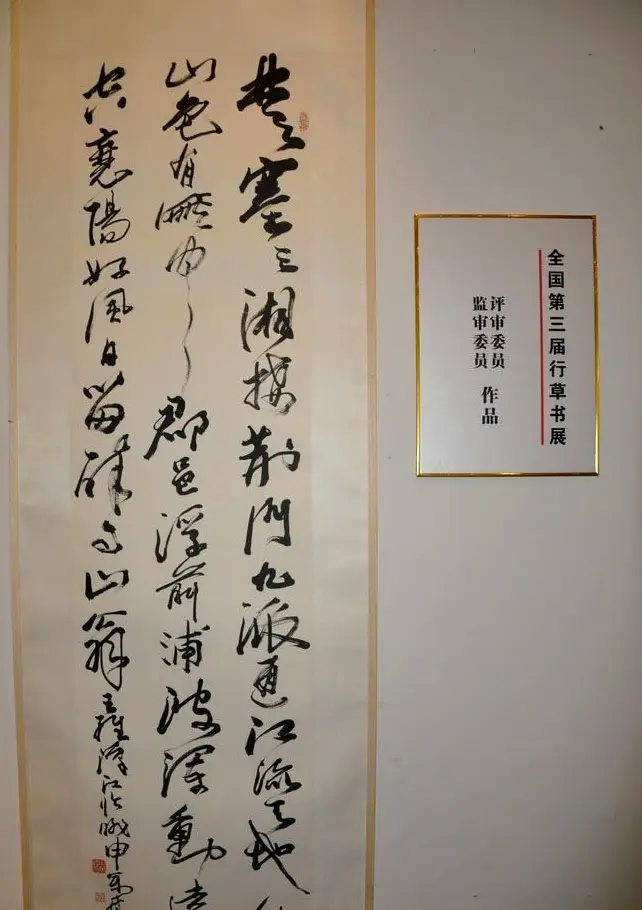 楚塞三湘接荆门九派通江流天地
山色有無中郡邑浮前浦波澜動
空襄陽好風日留醉与山翁
王維漢江临眺
全国第三届行草书展
评审委员
监审委员
作品